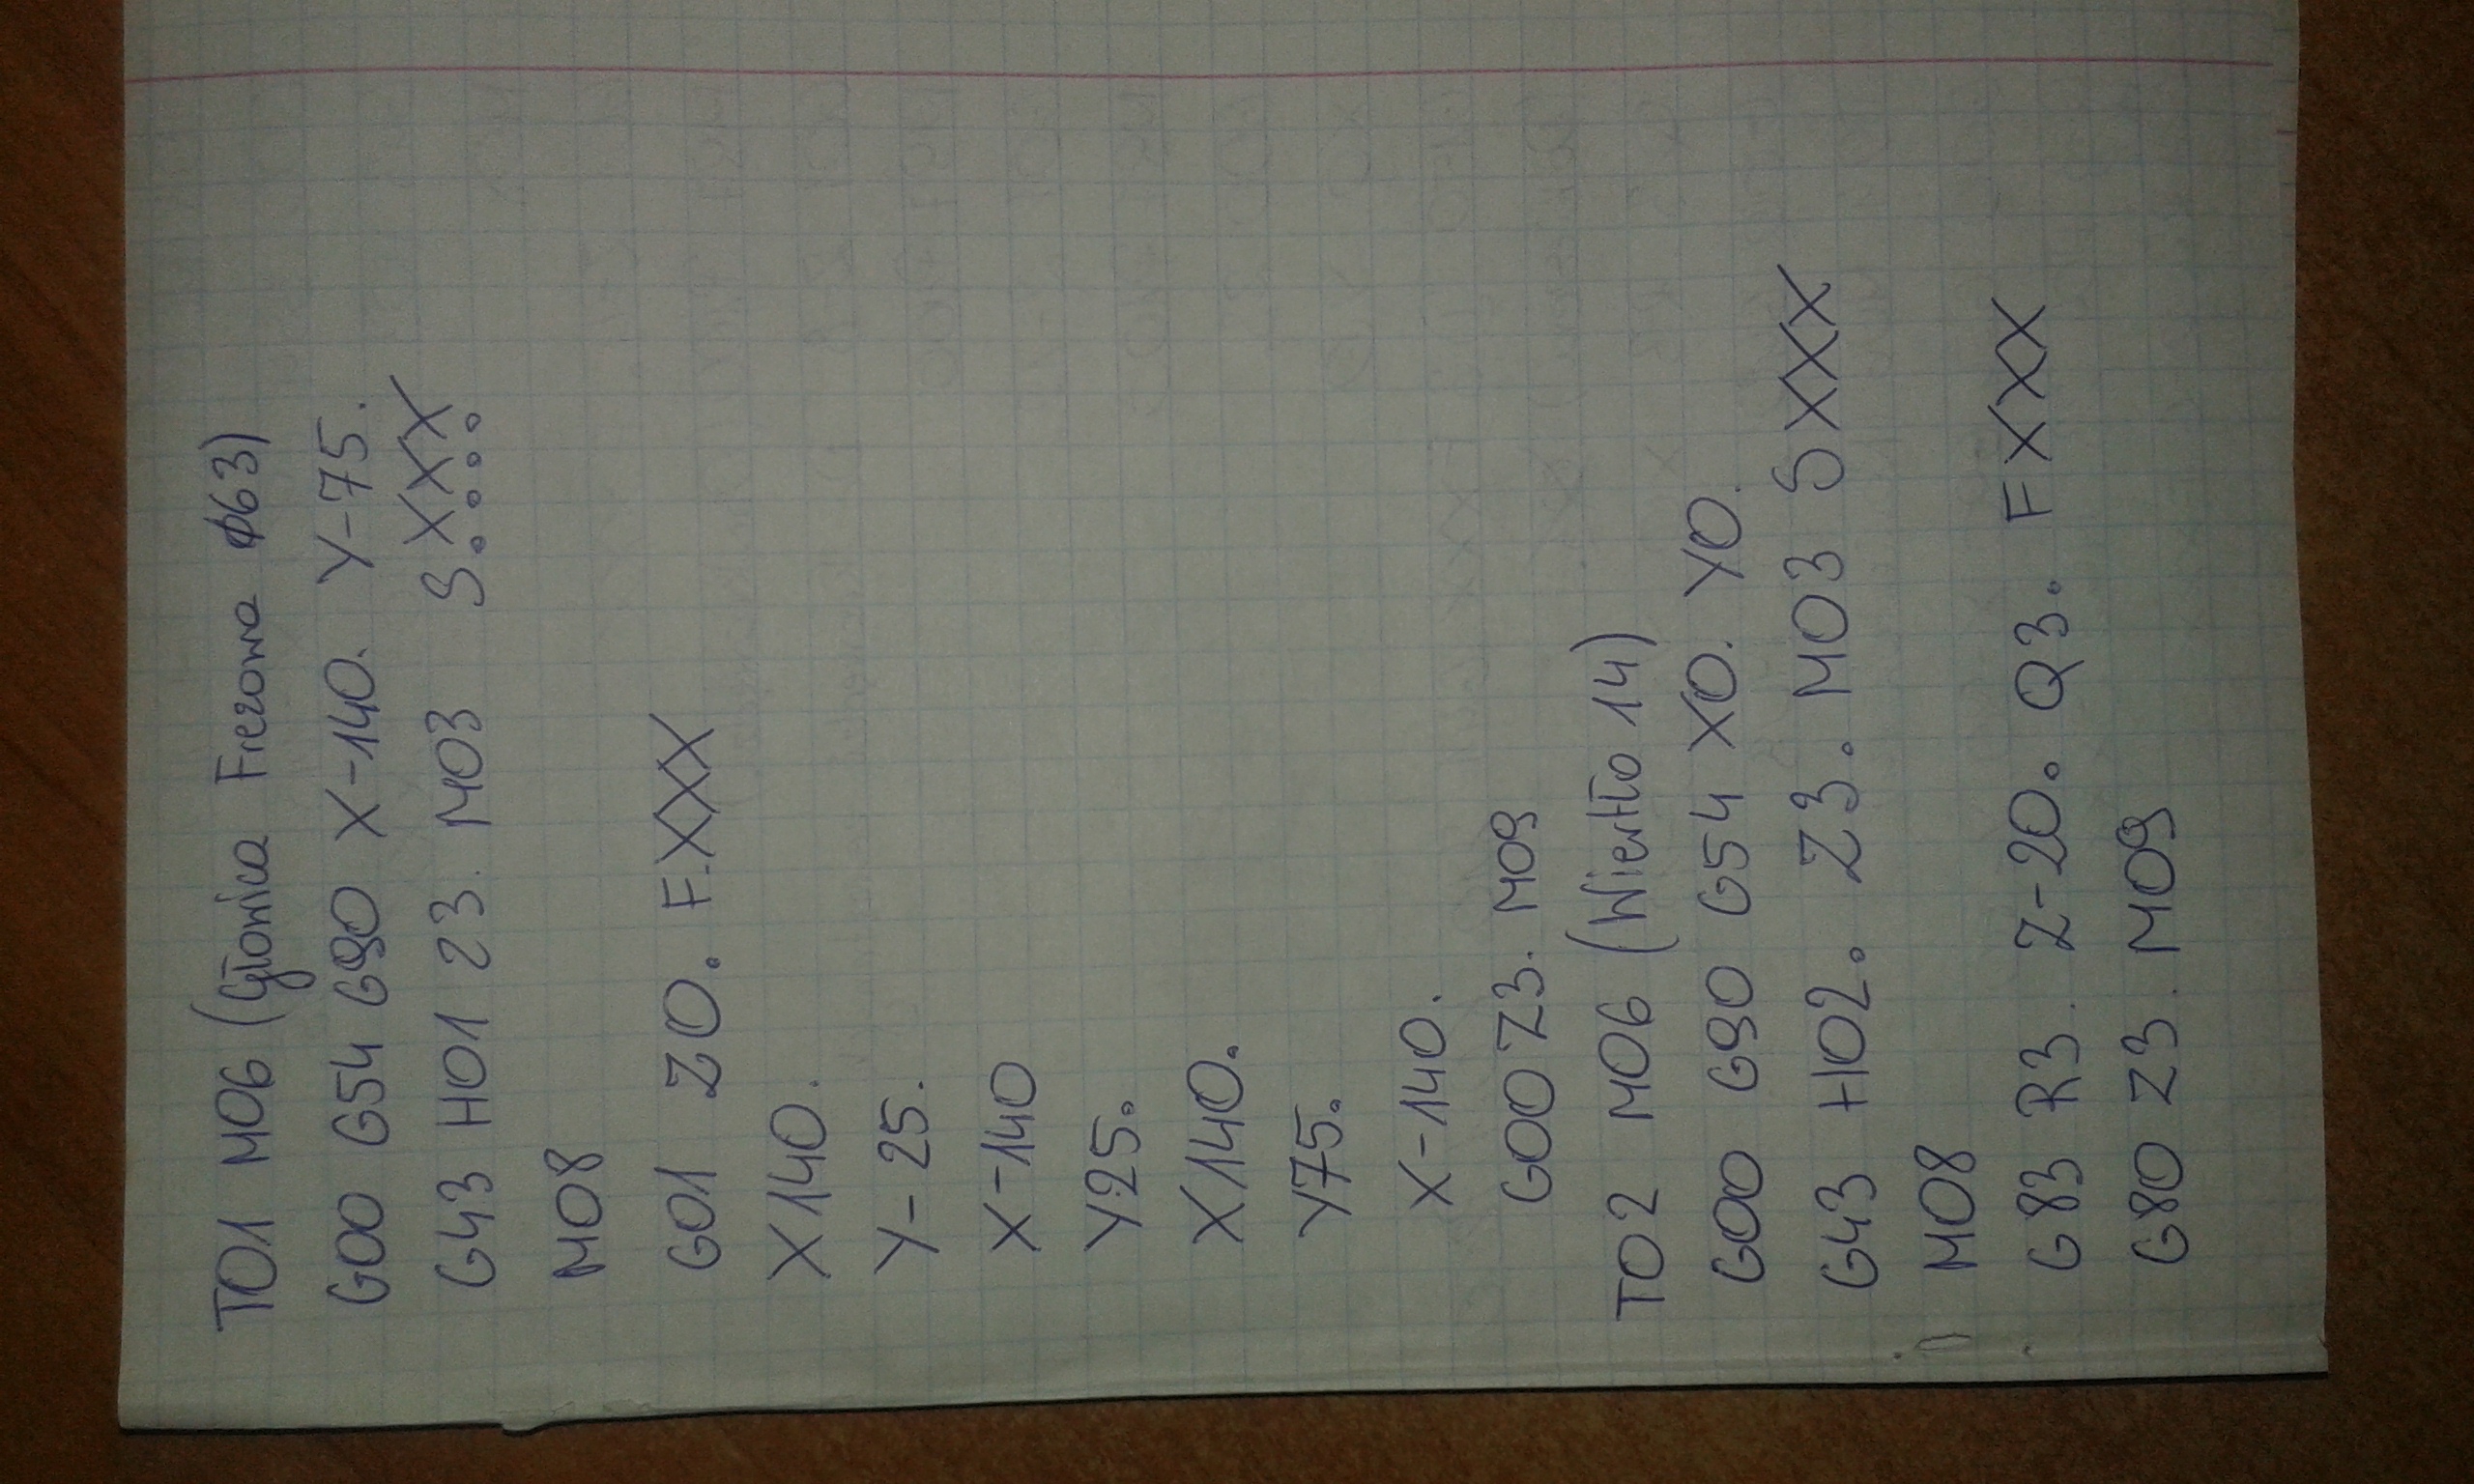 T01 M06 (Głowica Frezowa φ63)
G00 G54 G90 X-140. Y-75.
G43 H01 Z3. M03 SXXX
M08
G01 Z0. F.XXX
X140.
Y-25.
X-140
Y25.
X140.
Y75.
X-140.
G00 Z3. M09
T02 M06 (Wiertło 14)
G00 G90 G54 X0. Y0.
G43 H02. Z3. M03 SXXX
M08
G83 R3. Z-20. Q3. FXXX
G80 Z3. M09